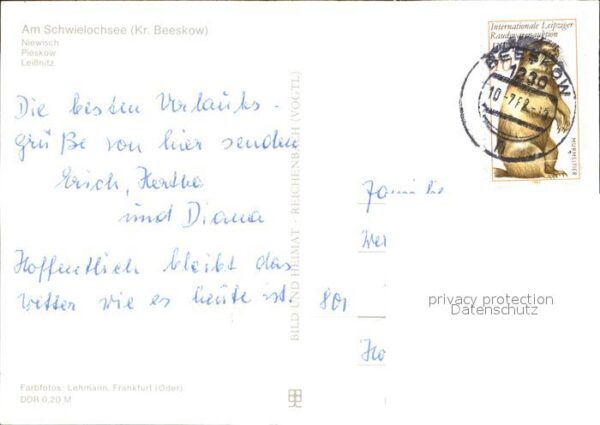 Am Schwielochsee (Kr. Beeskow)
Niewisch
Pieskow
Leißnitz
Die besten Urlaubs-
grüße von hier senden
Erich, Hertha
und Diana
Hoffentlich bleibt das
Wetter wie es heute ist.
Farbfotos: Lehmann, Frankfurt (Oder)
DDR 0,20 M
BILD UND HEIMAT · REICHENBACH (VOGTL)
Internationale Leipziger
Rauchwarenauktion
BEESKOW
1230
MURMELTIER
1982
Familie
801
privacy protection
Datenschutz